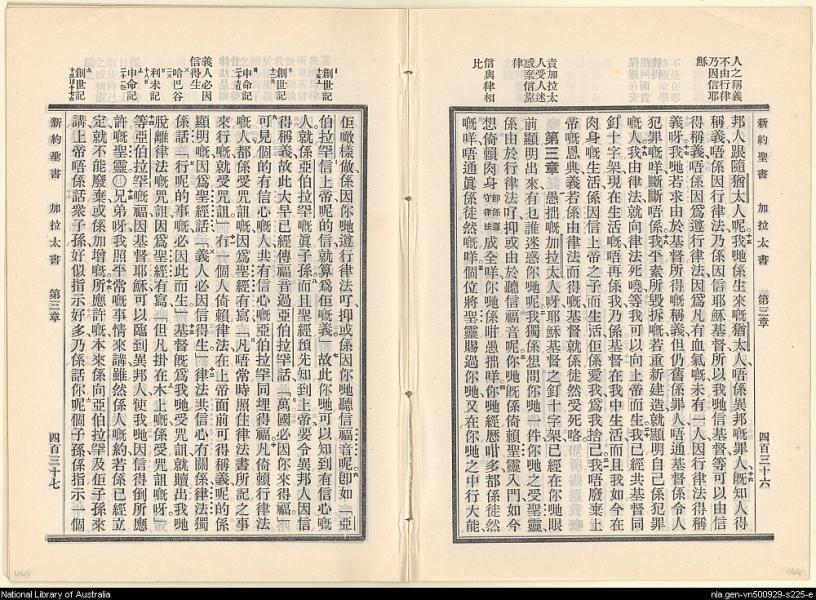 人之稱義
不由行律
乃因信耶
穌
責加拉太
人受人迷
惑棄信靠
律
信與律相
比
新約聖書 加拉太書 第三章 四百三十六
邦人跟隨猶太人呢我哋係生來嘅猶太人唔係異邦嘅罪人旣知人得
稱義唔係因行律法乃係因信耶穌基督所以我哋信基督等可以由信
得稱義唔係因爲遵行律法因爲凡有血氣嘅未有一人因行律法得稱
義呀我哋若求由於基督所得嘅稱義但仍舊係罪人唔通基督係令人
犯罪嘅咩斷斷唔係我平素所毀拆嘅若重新建造就顯明自己係犯罪
嘅人我由律法就向律法死嘵等我可以向上帝而生我已經共基督同
釘十字架現在生活唔再係我乃係基督在我中生活而且我如今在
肉身嘅生活係因信上帝之子而生活佢係愛我爲我捨己我唔廢棄上
帝嘅恩典義若係由律法而得嘅基督就係徒然受死咯
第三章 愚拙嘅加拉太人呀耶穌基督之釘十字架已經在你哋眼
前顯明出來有乜誰迷惑你哋呢我獨係想問你哋一件你哋之受聖靈
係由於行律法吖抑或由於聽信福音呢你哋旣係倚賴聖靈入門如今
想倚賴肉身 卽係遵守律法 成全咩你哋係咁愚拙咩你哋經歷咁多都係徒然
嘅咩唔通眞係徒然嘅咩個位將聖靈賜過你哋又在你哋之中行大能
創世記
創世記
申命記
義人必因
信得生
哈巴谷
利未記
申命記
創世記
佢噉樣做係因你哋遵行律法吖抑或係因你哋聽信福音呢卽如亞
伯拉罕信上帝呢的信就算爲佢嘅義故此你哋可以知到有信心嘅
人就係亞伯拉罕嘅眞子孫而且聖經預先知到上帝要令異邦人因信
得稱義故此大早已經傳福音過亞伯拉罕話萬國必因你來得福
可見個的有信心嘅人共有信心嘅亞伯拉罕同埋得福凡倚賴行律法
嘅人都係受咒詛嘅因爲聖經有寫凡唔常時照住律法書所記之事
來行嘅就受咒詛有一個人倚賴律法在上帝面前可得稱義呢的係
顯明嘅因爲聖經話義人必因信得生律法共信心冇關係律法獨
係話行呢的事嘅必因此而生基督旣爲我哋受咒詛就贖出我哋
脫離律法嘅咒詛因爲聖經有寫但凡掛在木上嘅係受咒詛嘅呀
等亞伯拉罕嘅福因基督耶穌可以臨到異邦人使我哋因信得倒所應
許嘅聖靈〇兄弟呀我照平常嘅事情來講雖然係人嘅約若係已經立
定就不能廢棄或係加增嘅所應許嘅本來係向亞伯拉罕及佢子孫來
講上帝唔係話衆子孫好似指示好多乃係話你呢個子孫係指示一個
新約聖書 加拉太書 第三章 四百三十七
National Library of Australia
nla.gen-vn500929-s225-e